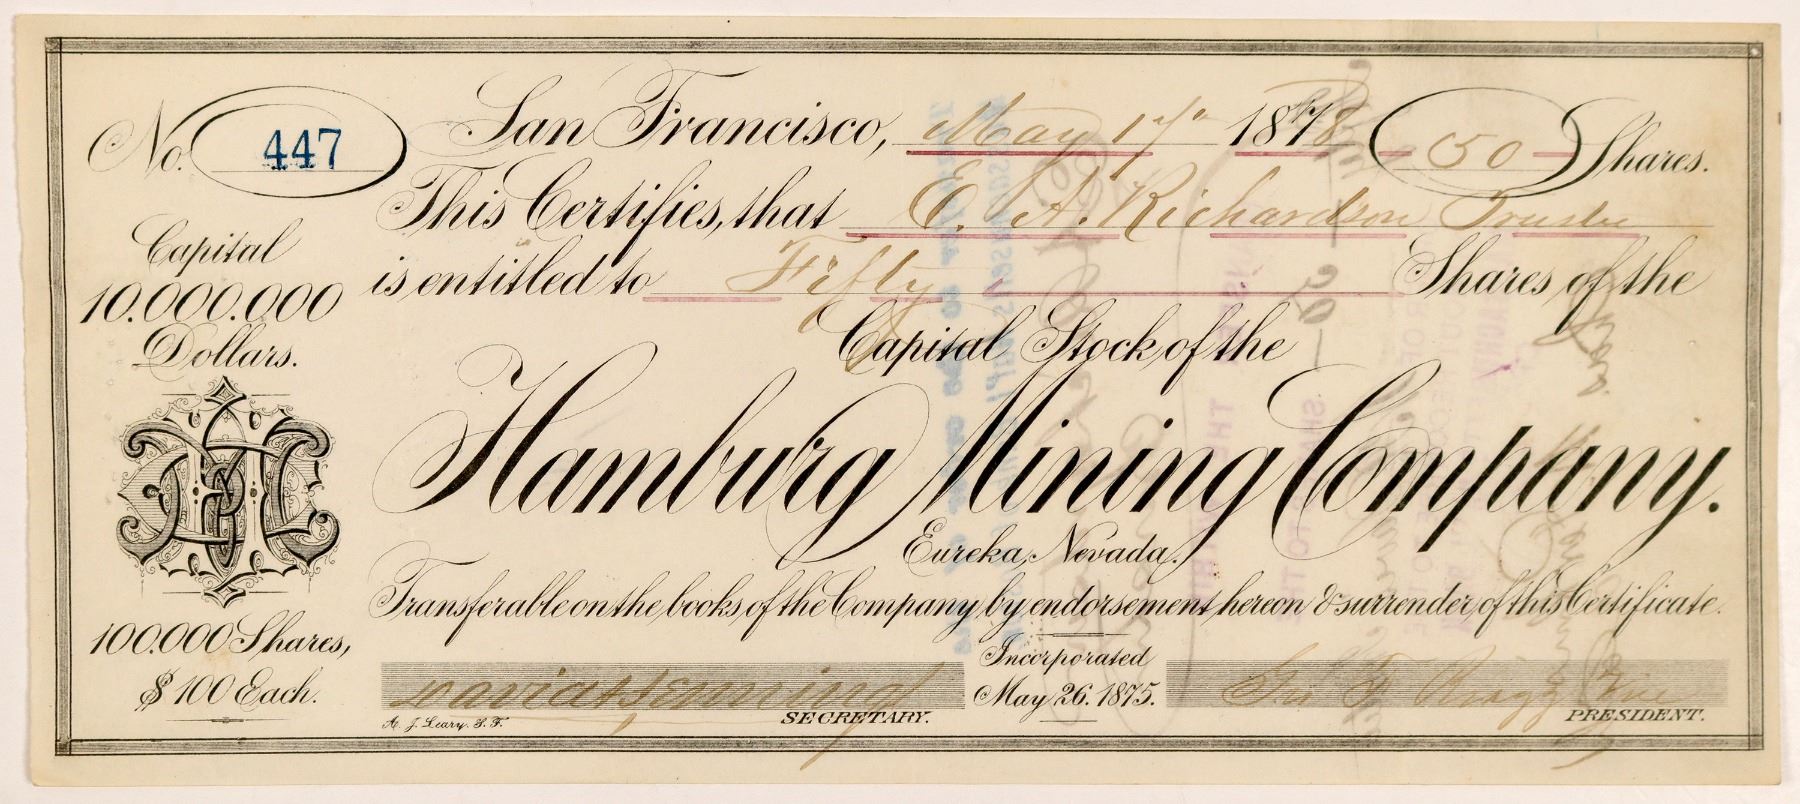 No. 447
San Francisco, May 17" 1878 50 Shares.
This Certifies, that E. A. Richardson Trustee
is entitled to Fifty Shares of the
Capital Stock of the
Hamburg Mining Company.
Eureka, Nevada.
Transferable on the books of the Company by endorsement hereon & surrender of this Certificate.
Capital
10.000.000
Dollars.
HMC
100.000 Shares,
$100 Each.
Incorporated
May 26. 1875.
SECRETARY.
PRESIDENT.
A. J. Leary. S. F.